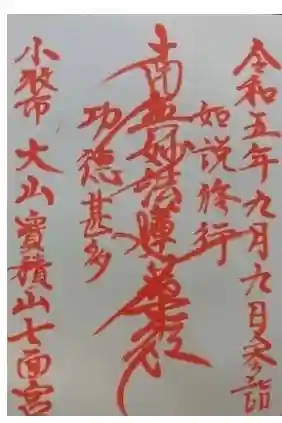 令和五年九月六日参詣
如説修行
南無妙法蓮華経
功徳甚多
小松市 大山寳積山七面宮